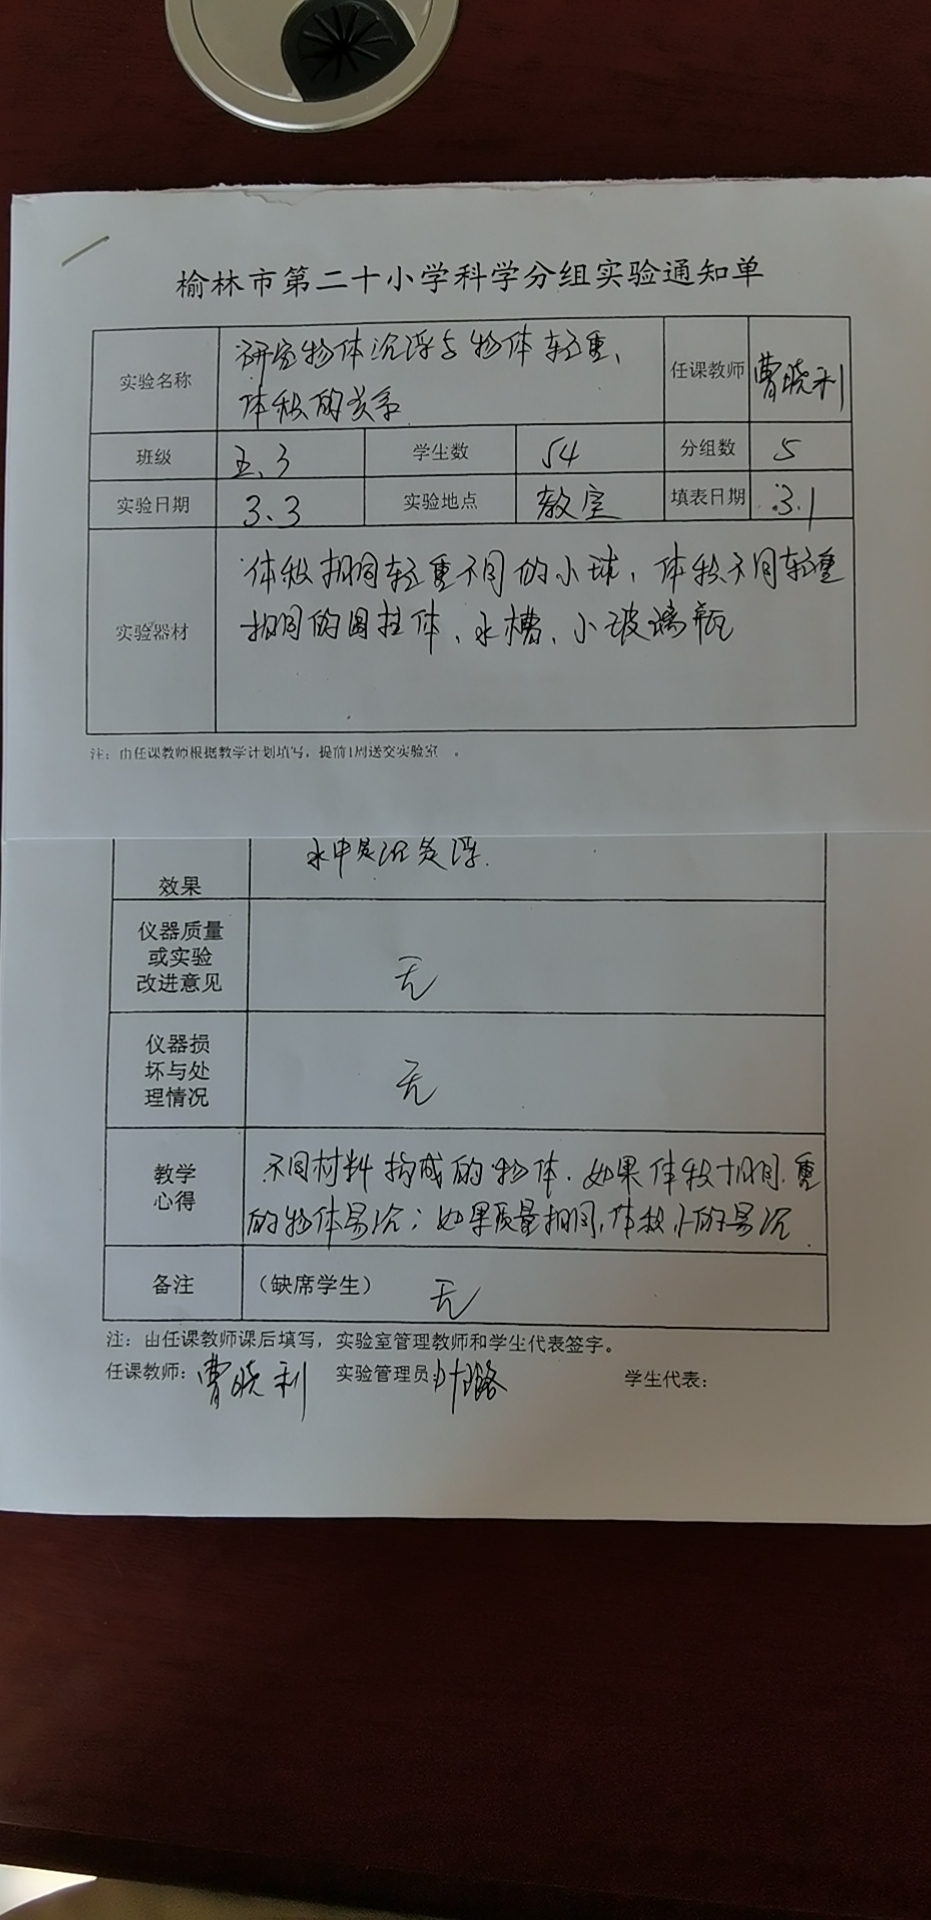 榆林市第二十小学科学分组实验通知单
实验名称 研究物体沉浮与物体轻重、
体积的关系
任课教师 曹晓利
班级 五.3 学生数 54 分组数 5
实验日期 3.3 实验地点 教室 填表日期 3.1
实验器材 体积相同轻重不同的小球,体积不同轻重
相同的圆柱体、水槽、小玻璃瓶
注:由任课教师根据教学计划填写,提前1周送交实验室 。
水中是沉是浮.
效果
仪器质量
或实验
改进意见
无
仪器损
坏与处
理情况
无
教学
心得
不同材料构成的物体.如果体积相同.重
的物体易沉;如果质量相同,体积小的易沉.
备注 (缺席学生) 无
注:由任课教师课后填写,实验室管理教师和学生代表签字。
任课教师:曹晓利 实验管理员: 学生代表: